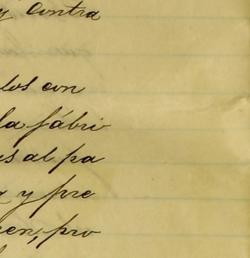 y contra
los con
la fábri
us al pa
a y pre
en, pro